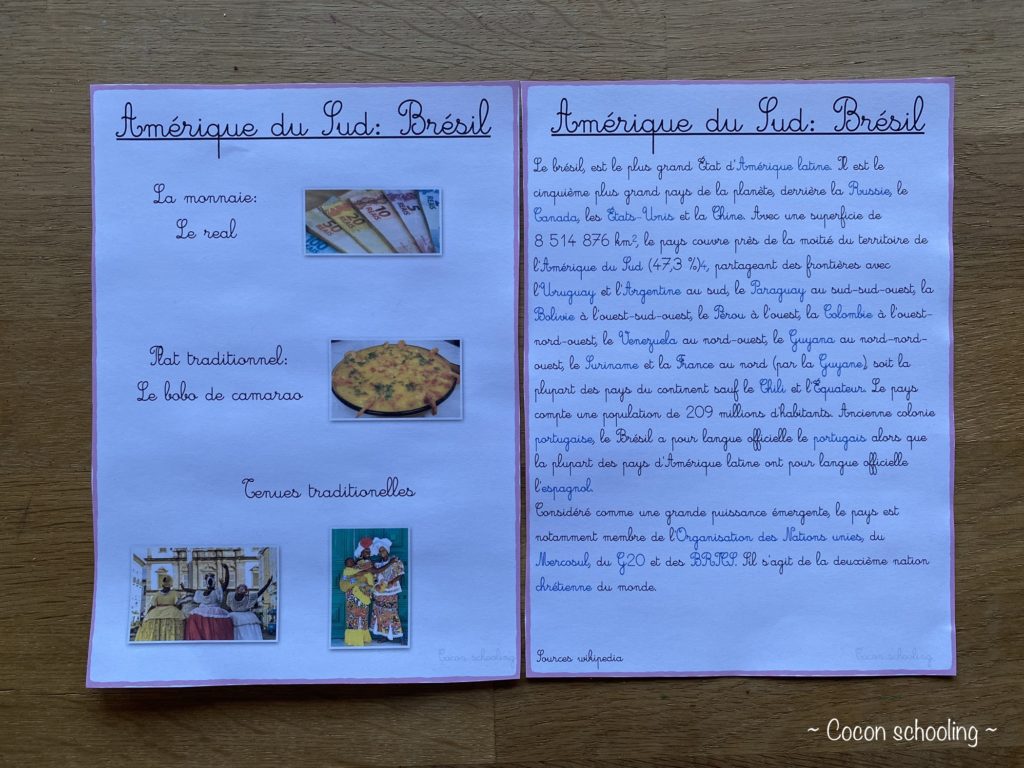 Amérique du Sud: Brésil
La monnaie:
Le real
Plat traditionnel:
Le bobo de camarao
Tenues traditionelles
Cocon schooling
Amérique du Sud: Brésil
Le brésil, est le plus grand État d'Amérique latine. Il est le
cinquième plus grand pays de la planète, derrière la Russie, le
Canada, les États-Unis et la Chine. Avec une superficie de
8 514 876 km², le pays couvre près de la moitié du territoire de
l'Amérique du Sud (47,3 %)4, partageant des frontières avec
l'Uruguay et l'Argentine au sud, le Paraguay au sud-sud-ouest, la
Bolivie à l'ouest-sud-ouest, le Pérou à l'ouest, la Colombie à l'ouest-
nord-ouest, le Venezuela au nord-ouest, le Guyana au nord-nord-
ouest, le Suriname et la France au nord (par la Guyane) soit la
plupart des pays du continent sauf le Chili et l'Équateur. Le pays
compte une population de 209 millions d'habitants. Ancienne colonie
portugaise, le Brésil a pour langue officielle le portugais alors que
la plupart des pays d'Amérique latine ont pour langue officielle
l'espagnol.
Considéré comme une grande puissance émergente, le pays est
notamment membre de l'Organisation des Nations unies, du
Mercosul, du G20 et des BRICS. Il s'agit de la deuxième nation
chrétienne du monde.
Sources wikipedia
Cocon schooling
~ Cocon schooling ~